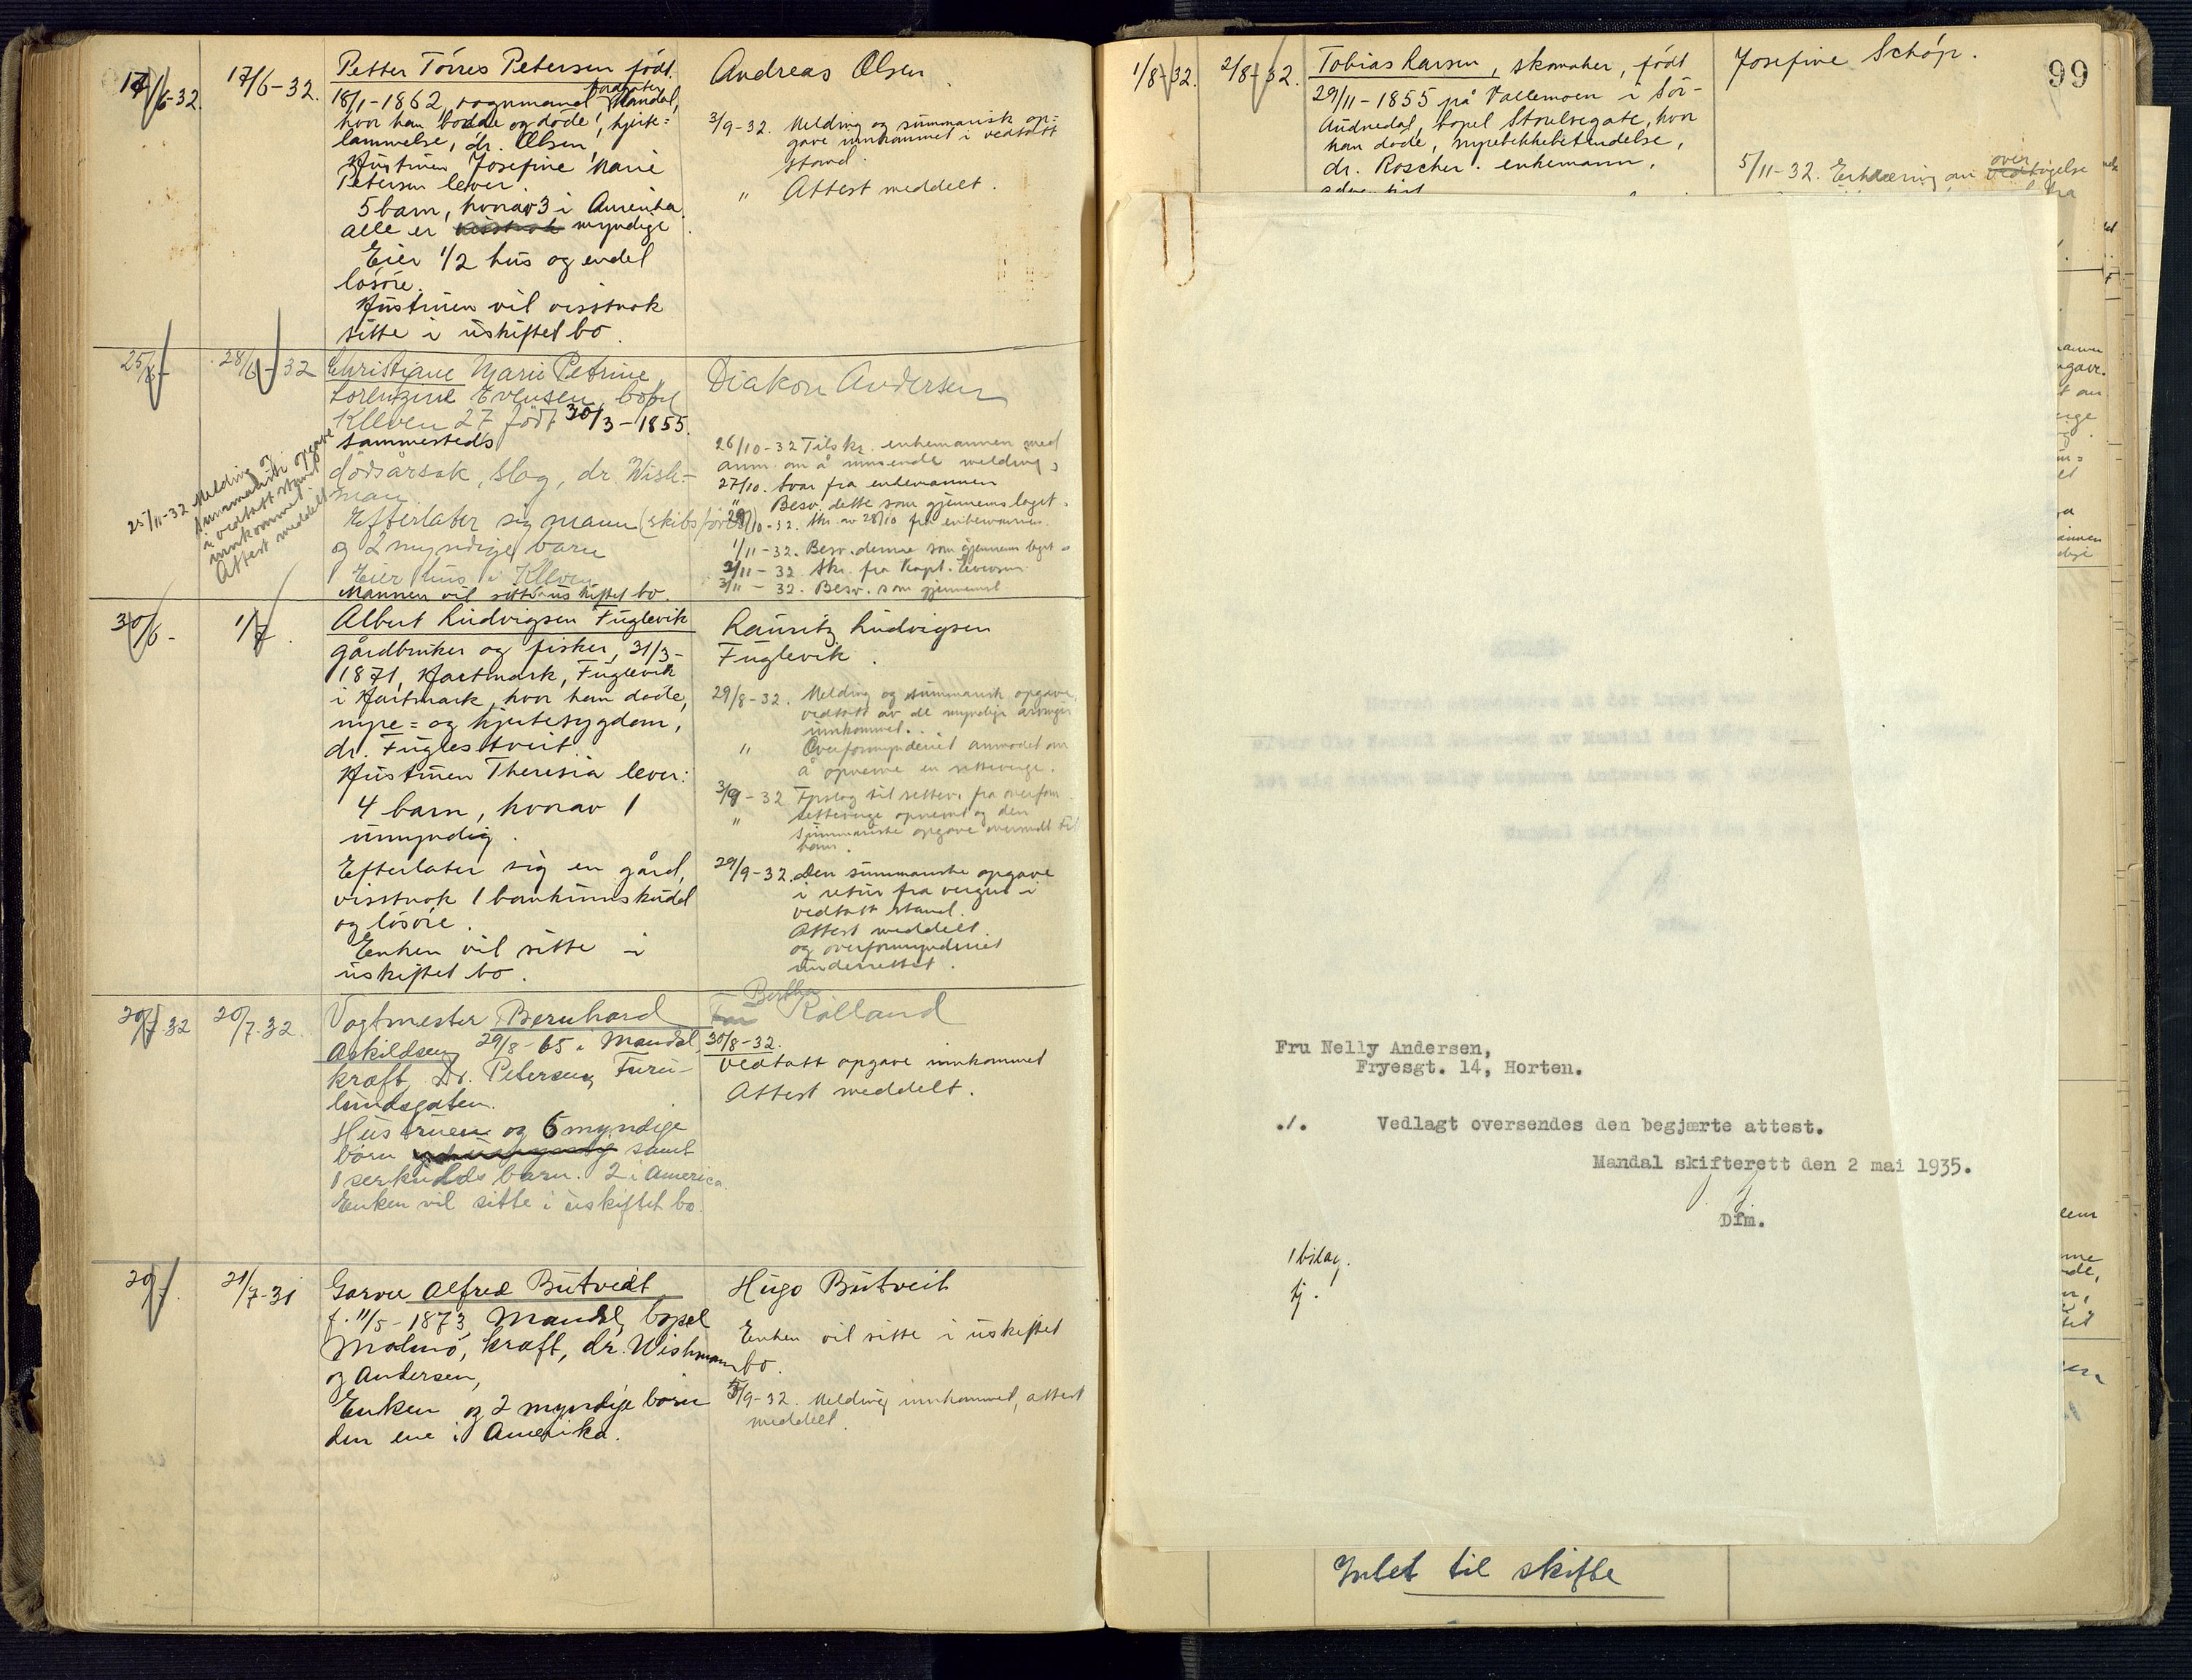 17/6-32. 17/6-32.
Petter Tórres Petersen født.
18/1-1862, rognmand Mandal,
hvor han bodde og døde, hjerte=
lammelse, dr. Olsen
Hustruen Josefine Marie
Petersen lever.
5 barn, hvorav 3 i Amerika.
alle er myndige
Eier 1/2 hus og endel
løsøre.
Hustruen vil visstnok
sitte i uskiftet bo.
Andreas Olsen
3/9-32. Melding og summarisk op=
gave innkommet i vedtatt
stand.
" Attest meddelt.
25/6- 28/6-32
Christiane Marie Petrine
Lorentzine Evensen, bopel
Kleven 27 født 30/3-1855.
sammesteds
dødsårsak, slag, dr. Wish-
man.
Efterlater sig mann (skibsfører)
og 2 myndige barn
Eier hus i Kleven
Mannen vil sitte i uskiftet bo.
25/11-32 Melding og
summarisk opgave
i vedtatt stand
innkommet.
Attest meddelt
Diakon Andersen
26/10-32 Tilskr. enkemannen med
anm. om å innsende melding,
27/10. Svar fra enkemannen
" Besv. dette som gjennemslaget.
29/10-32. Skr. av 28/10 fra enkemannen.
1/11-32. Besv. denne som gjennemslaget.
2/11-32 Skr. fra Kapt. Evensen
3/11-32. Besv. som gjennemsl
30/6- 1/7.
Albert Ludvigsen Fuglevik
gårdbruker og fisker, 31/3-
1871, Hartmark, Fuglevik
i Hartmark, hvor han døde,
nyre= og hjertesygdom,
dr. Fuglestveit.
Hustruen Theresia lever:
4 barn, hvorav 1
umyndig.
Efterlater sig en gård,
visstnok 1 bankinnskudd
og løsøre.
Enken vil sitte i
uskiftet bo.
Lauritz Ludvigsen
Fuglevik.
29/8-32. Melding og summarisk opgave,
vedtatt av de myndige arvinger
innkommet.
" Overformynderiet anmodet om
å opnevne en setteverge.
3/9-32 Forslag til settev. fra overform.
" setteverge opnevnt og den
summariske opgave oversendt til
ham.
29/9-32. Den summariske opgave
i retur fra vergen i
vedtatt stand.
Attest meddelt.
og overformynderiet
underrettet.
20/7 32 20/7.32.
Vagtmester Bernhard
Askildsen 29/8-65 i Mandal,
kræft, Dr. Petersen, Furu-
lundsgaten.
Hustruen og 6 myndige
børn samt
1 særkulds barn. 2 i America.
Enken vil sitte i uskiftet bo.
Bertha
Rolland
30/8-32.
Vedtatt opgave innkommet
Attest meddelt.
20/7. 21/7-31
Garver Alfred Butveit
f. 11/5-1873, Mandal, bopel
Malmø, kræft, dr. Wishmann
og Andersen,
Enken og 2 myndige børn
den ene i Amerika.
Hugo Butveit
Enken vil sitte i uskiftet
bo.
5/9-32. Melding innkommet, attest
meddelt.
99
1/8-32. 2/8-32.
Tobias Larsen, skomaker, født
29/11-1855 på Vallemoen i Sør-
Audnedal, bopel Storelvegate, hvor
han døde, nyrebekkebetendelse,
dr. Roscher. enkemann,
Josefine Schøp.
5/11-32. Erklæring om over
Fru Nelly Andersen,
Fryesgt. 14, Horten.
./. Vedlagt oversendes den begjærte attest.
Mandal skifterett den 2 mai 1935.
Dfm.
1 bilag.
Intet til skifte